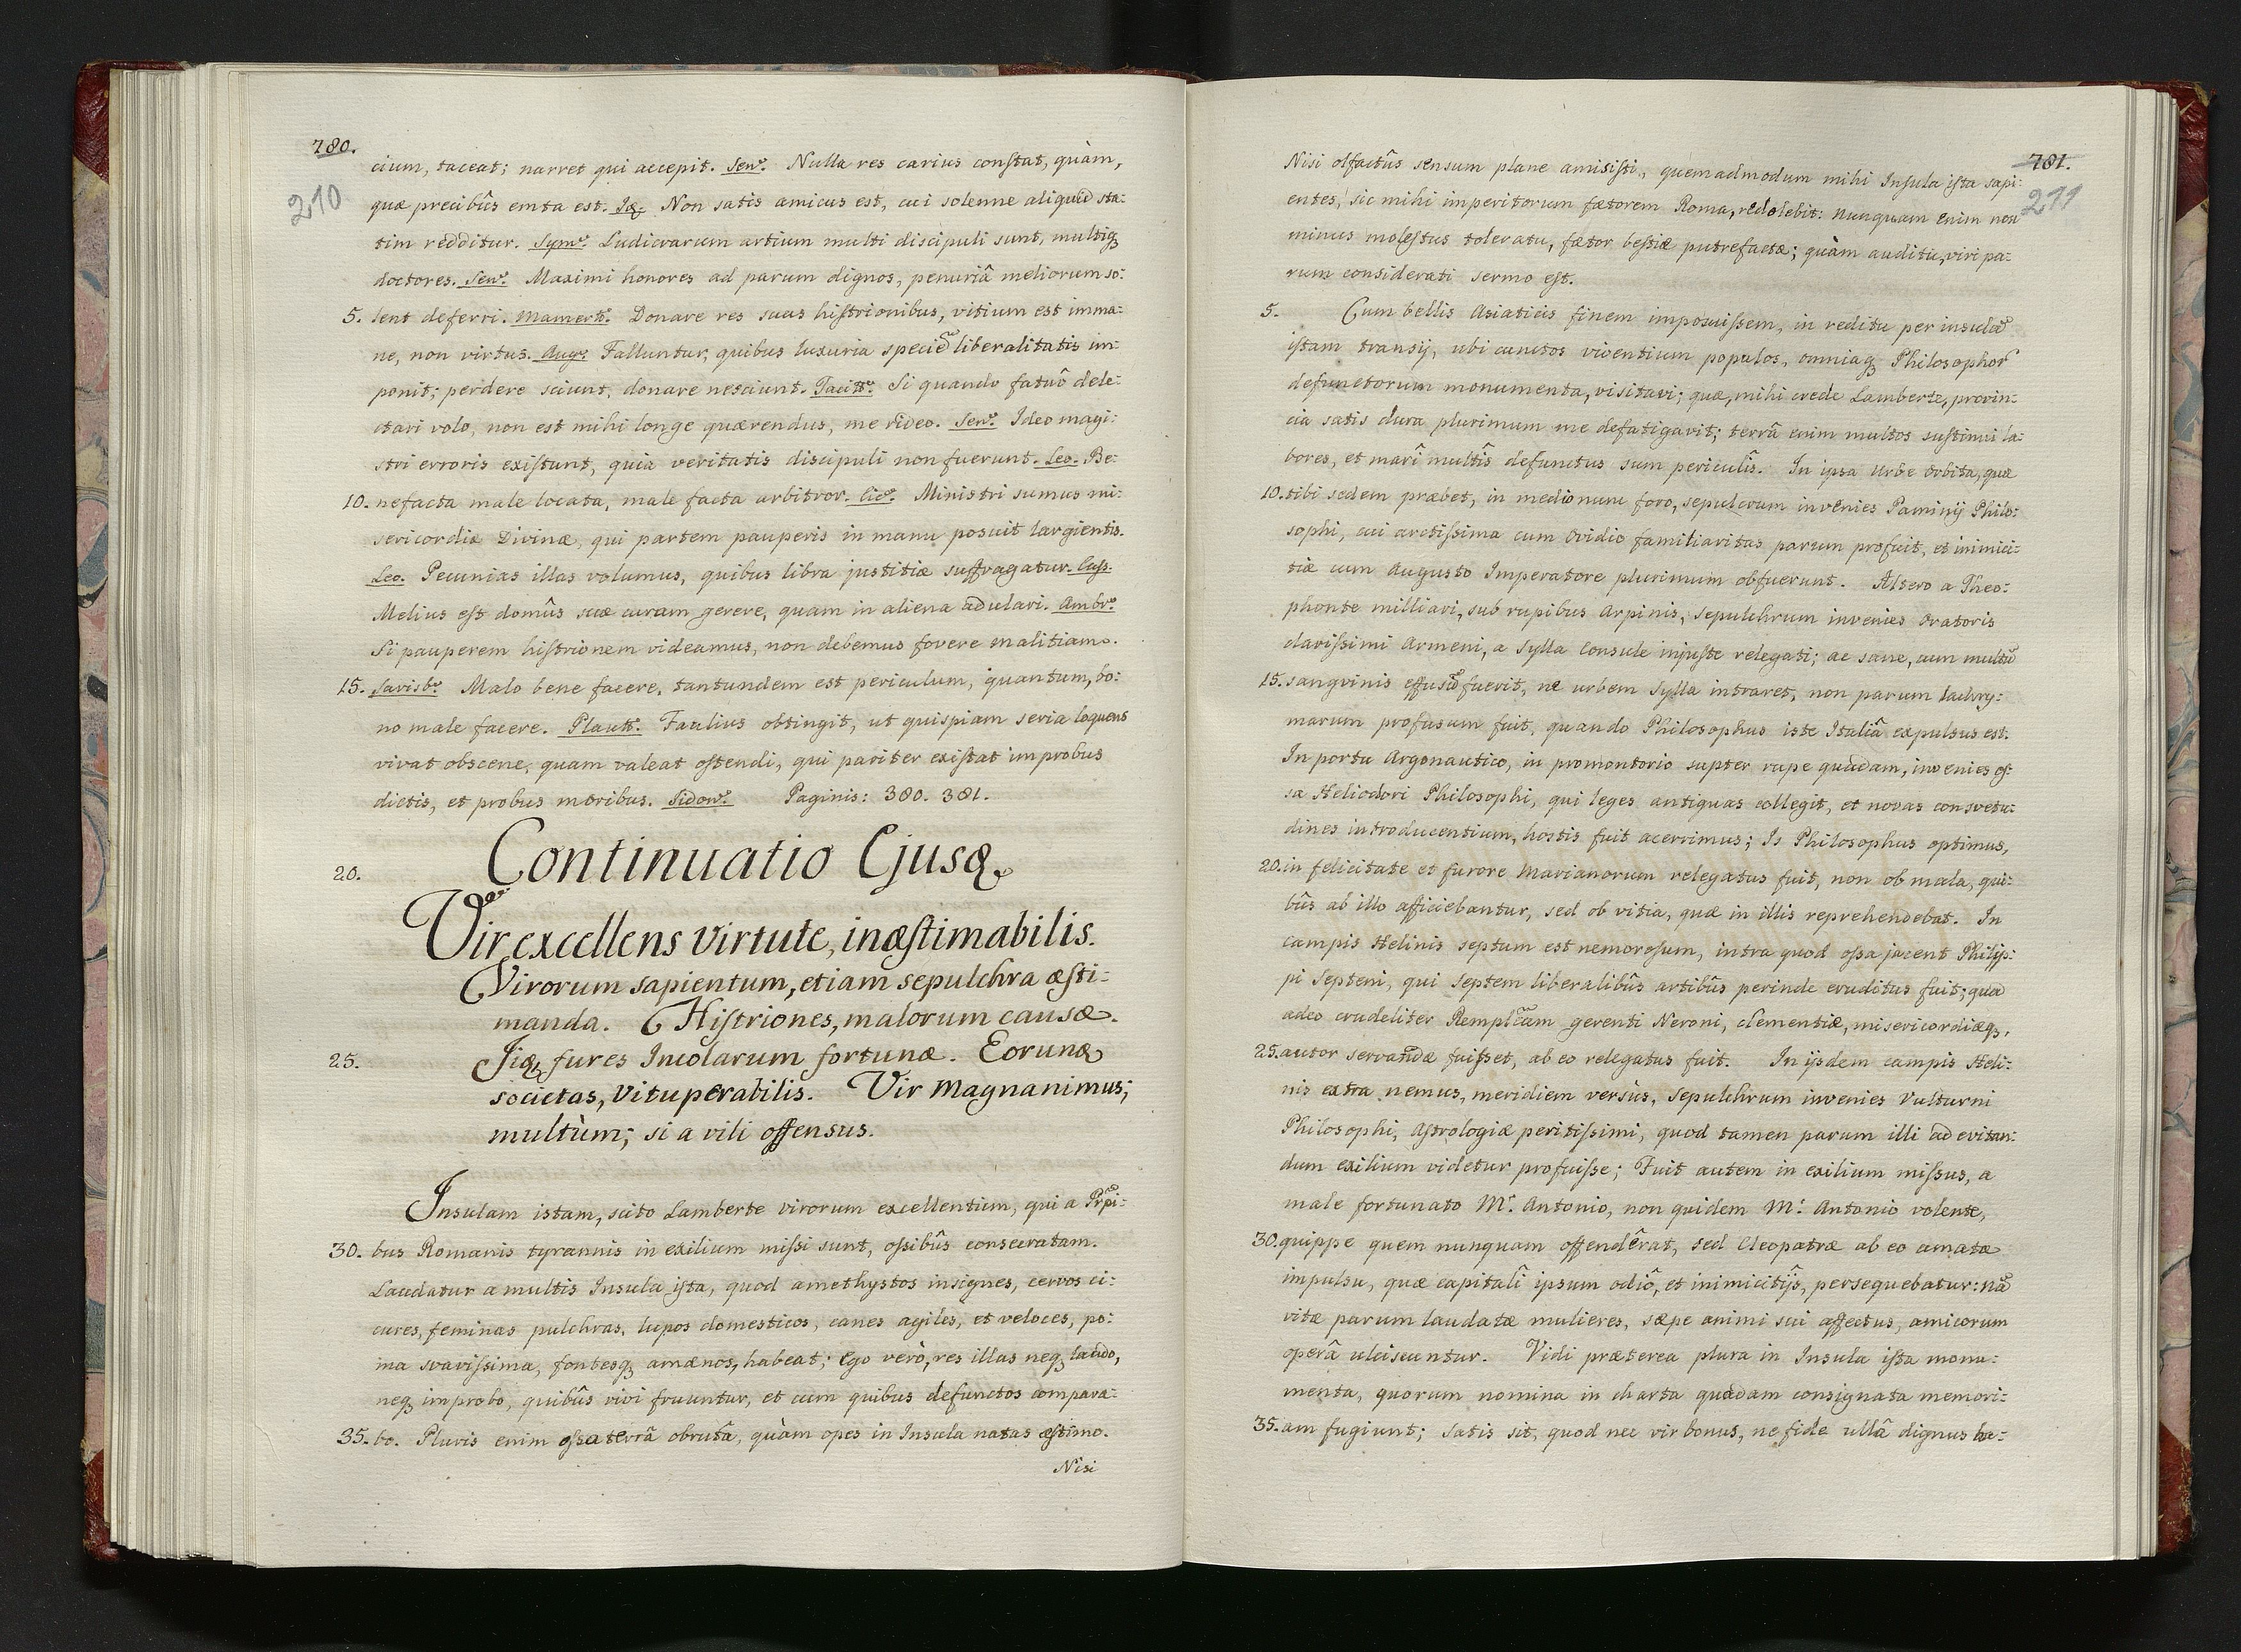 780.
210
cium, taceat; narret qui accepit. Sen: Nulla res carius conſtat, quàm,
quæ precibûs emta est. Iđ. Non satis amicus est, cui solenne aliquid sta:
tim redditur. Sym: Ludicrarum artium multi discipuli sunt, multiq;
doctores. Sen: Maximi honores ad parum dignos, penuriâ meliorum so:
5. lent deferri. Mamert: Donare res suas hiſtrionibus, vitium est imma:
ne, non virtus. Aug: Falluntur, quibus luxuria specie liberalitatis im:
ponit; perdere sciunt, donare nesciunt. Tacit: Si quando fatuô dele:
ctari volo, non est mihi longe quærendus, me rideo. Sen: Ideo magi:
stri erroris exiſtunt, quia veritatis discipuli non fuerunt. Leo. Be:
10. nefacta male locata, male facta arbitror. Cic: Ministri sumus mi:
sericordiæ Divinæ, qui partem pauperis in manu posuit largientis.
Leo. Pecunias illas volumus, quibus libra justitiæ suffragatur. Caſs.
Melius eſt domûs suæ curam gerere, quam in aliena adulari. Ambr:
Si pauperem hiſtrionem videamus, non debemus fovere malitiam.
15. Sarisb: Malo bene facere, tantundem est periculum, quantum, bo:
no male facere. Plaut: Facilius obtingit, ut quispiam seria loquens
vivat obscene, quam valeat oſtendi, qui pariter exiſtat improbus
dictis, et probus moribus. Sidon: Paginis: 380. 381.
20. Continuatio Ejusđ.
Vir excellens virtute, inæſtimabilis.
Virorum sapientum, etiam sepulchra æſti-
manda. Hiſtriones, malorum causæ.
25. Jiđ, fures Incolarum fortunæ. Eorunđ
societas, vituperabilis. Vir magnanimus;
multùm; si a vili offensus.
Insulam istam, scito Lamberte virorum excellentium, qui a Prpi:
30. bus Romanis tyrannis in exilium miſsi sunt, oſsibûs consecratam.
Laudatur a multis Insula iſta, quod amethystos insignes, cervos ci:
cures, feminas pulchras, lupos domesticos, canes agiles, et veloces, po:
ma svaviſsima, fontesq; amænos, habeat; Ego verò, res illas neq; laudo,
neq; improbo, quibûs vivi fruuntur, et cum quibus defunctos compara:
35. bo. Pluris enim oſsa terrâ obrutâ, quàm opes in Insula natas æſtimo.
Nisi
781.
211
Nisi olfactûs sensum plane amisiſti, quemadmodum mihi Inſula iſta sapi:
entes, sic mihi imperitorum fætorem Roma, redolebit: nunquam enim non
minus moleſtus toleratu, fætor beſtiæ putrefactæ; quàm auditu, viri pa:
rum considerati sermo eſt.
5. Cum bellis Asiaticis finem imposuiſsem, in reditu per insulã
iſtam transij, ubi cunctos viventium populos, omniaq; Philosophor
defunctorum monumenta, visitavi; quæ, mihi crede Lamberte, provin:
cia satis dura plurimum me defatigavit; terrâ enim multos suſtinui la:
bores, et marî multîs defunctus sum periculîs. In ipsa Urbe Orbita, quæ
10. tibi sedem præbet, in medio nunc foro, sepulcrum invenies Paminij Philo:
sophi, cui arctiſsima cum Ovidio familiaritas parum profuit, et inimici:
tiæ cum Augusto Imperatore plurimum obfuerunt. Altero a Theo:
phonte milliari, sub rupibus Arpinis, sepulchrum invenies Oratoris
clariſsimi Armeni, a Sylla Consule injuſte relegati; ac sane, cum multũ
15. sangvinis effusũ fuerit, ne urbem Sylla intraret, non parum lachry:
marum profusum fuit, quando Philosophus iste Italiâ expulsus est.
In portu Argonautico, in promontorio supter rupe quadam, invenies oſ:
sa Heliodori Philosophi, qui leges antiquas collegit, et novas consvetu:
dines introducentium, hostis fuit acerrimus; Is Philosophus optimus,
20. in felicitate et furore Marianorum relegatus fuit, non ob mala, qui:
bûs ab illo afficiebantur, sed ob vitia, quæ in illis reprehendebat. In
campis Helinis septum est nemorosum, intra quod oſsa jacent Philip:
pi Septeni, qui septem liberalibûs artibûs perinde eruditus fuit; quod
adeo crudeliter Remplcam gerenti Neroni, clementiæ, misericordiæq;,
25. autor servandæ fuiſset, ab eo relegatus fuit. In ijsdem campis Heli:
nis extra nemus, meridiem versùs, sepulchrum invenies Vulturni
Philosophi, Aſtrologiæ peritiſsimi, quod tamen parum illi ad evitan:
dum exilium videtur profuiſse; Fuit autem in exilium miſsus, a
male fortunato M: Antonio, non quidem M: Antonio volente,
30. quippe quem nunquam offendêrat, sed Cleopatræ ab eo amatæ
impulsu, quæ capitalî ipsum odiô, et inimicitijs, persequebatur: nã
vitæ parum laudatæ mulieres, sæpe animi sui affectus, amicorum
operâ ulciscuntur. Vidi præterea plura in Insula iſta monu:
menta, quorum nomina in charta quadam consignata memori:
35. am fugiunt; satis sit, quod nec vir bonus, ne fide ullâ dignus ha: